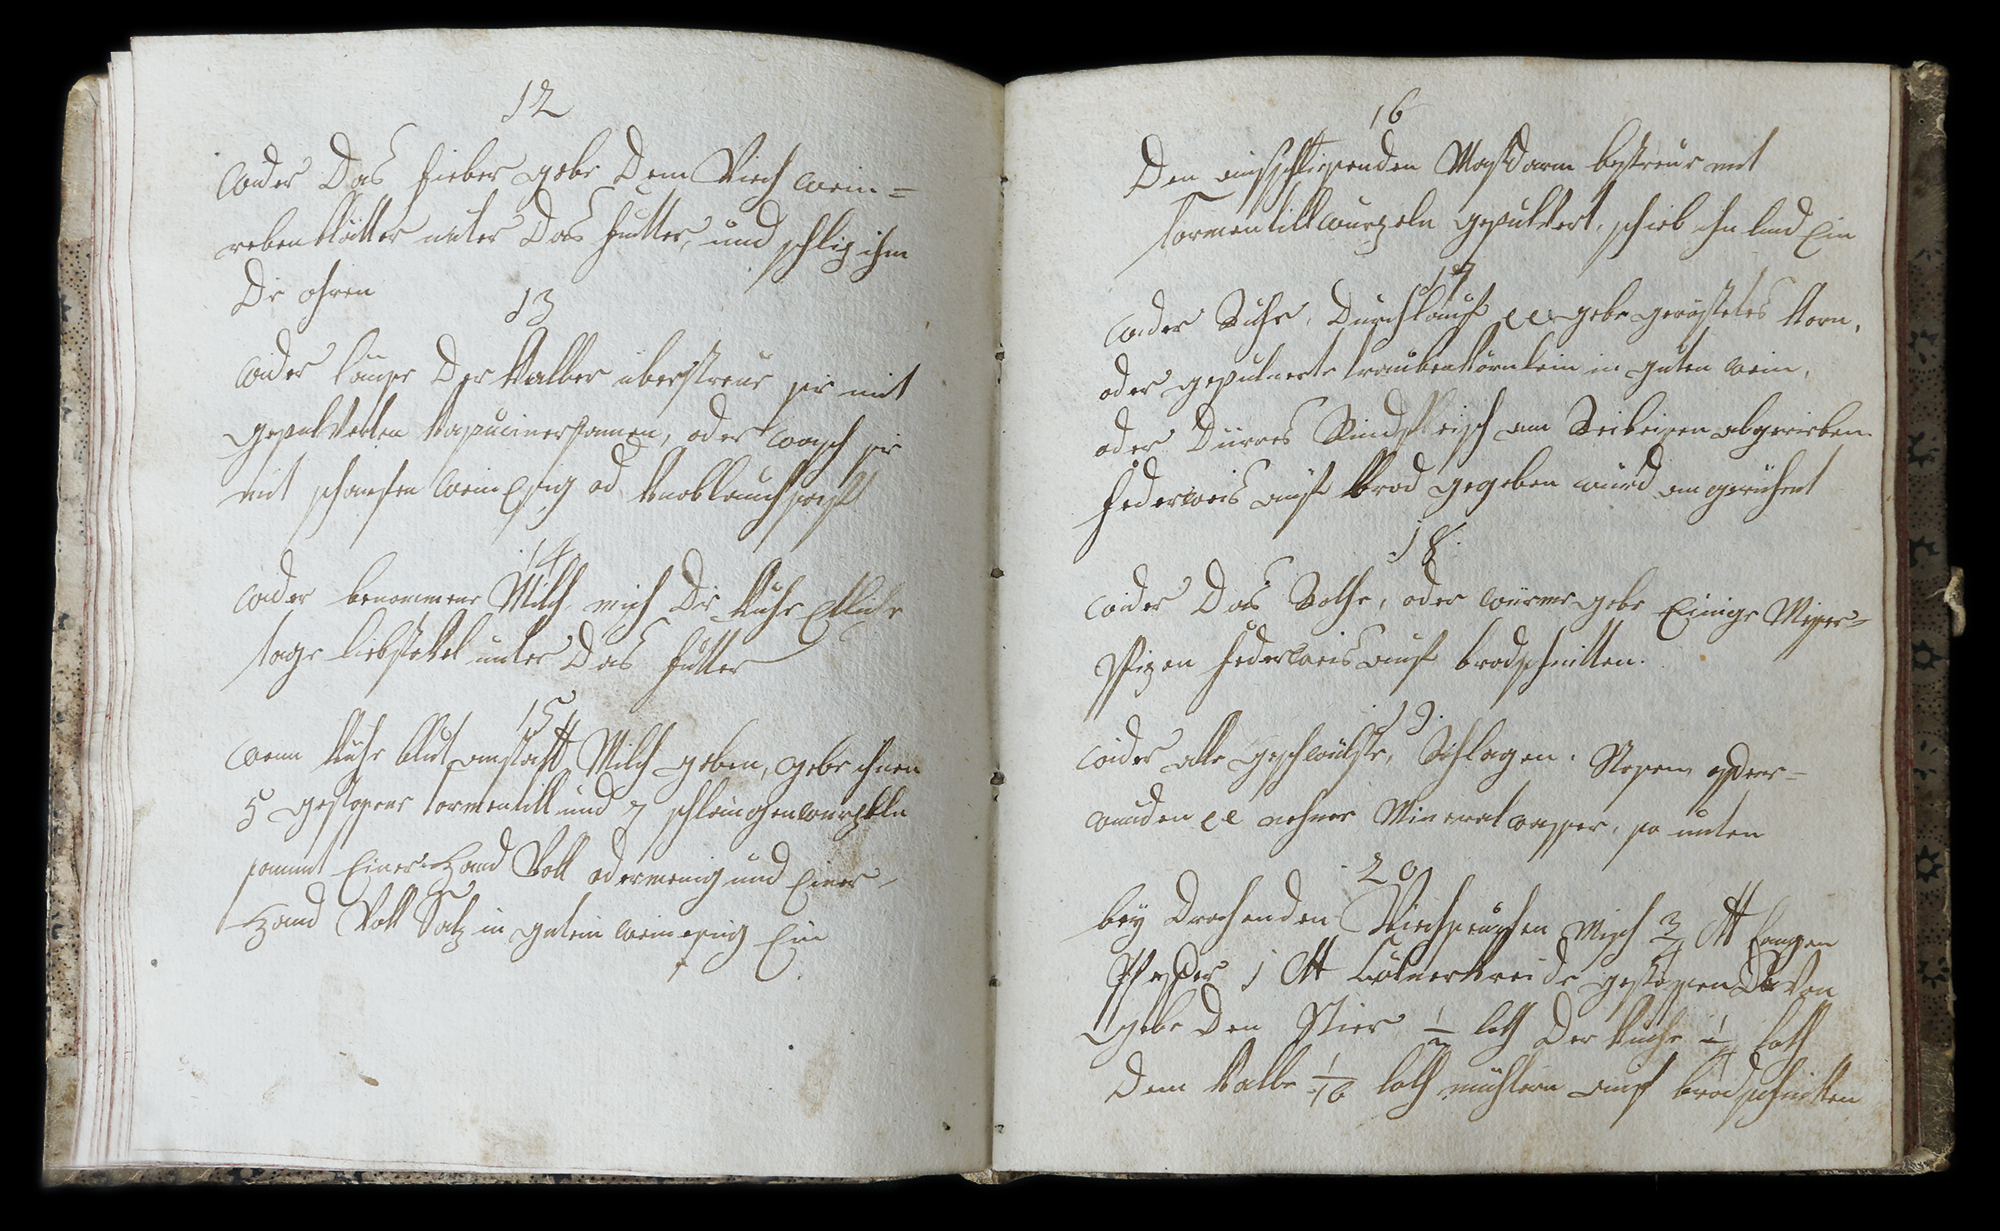 12
wider Das fieber gebe Dem Viech wein=
rebenblätter unter Das futter, und schliz ihm
Die ohren
13
wider läuse Der Kälber überstreue sie mit
gepulverten Kapucinersamen, oder wasch sie
mit scharfen weinessig od Knoblauchsaft
14
wider benommene Milch misch Der Kuhe Etliche
tage liebstökel unter Das futter
15
wenn Kühe blut anstatt Milch geben, gebe ihnen
5 gestossene tormentill und 7 schlangenwurzeln
sammt Einer Hand Voll odermenig und Einer
Hand Voll Salz in gutem weinessig Ein
16
Den ausschliessenden Mastdarm bestreue mit
tormentillwurzeln gepulvert, schieb ihn lind Ein
17
wider Ruhr, Durchlauf gebe geröstetes Korn,
oder gepulverte traubenkörnlein in guten wein,
oder Dürres Rindfleisch am Reibeisen abgerieben
federweis auf brod gegeben wird angerühmt
18
wider Das Rothe, oder würme gebe Einige Messer=
spizen federweis auf brodschnitten.
19
wider alle geschwülste, Schlagen,
wunden nehme Mineralwasser, so unten
20
bey Drohenden Viehseuchen Misch 3/4 ℔ langen
Pfeffer 1 ℔ Cölnerkreide gestossen Davon
gebe Den Stier 1/2 loth Der Kuhe 1/4 loth
Dem Kalbe 1/16 loth nüchtern auf brodschnitten